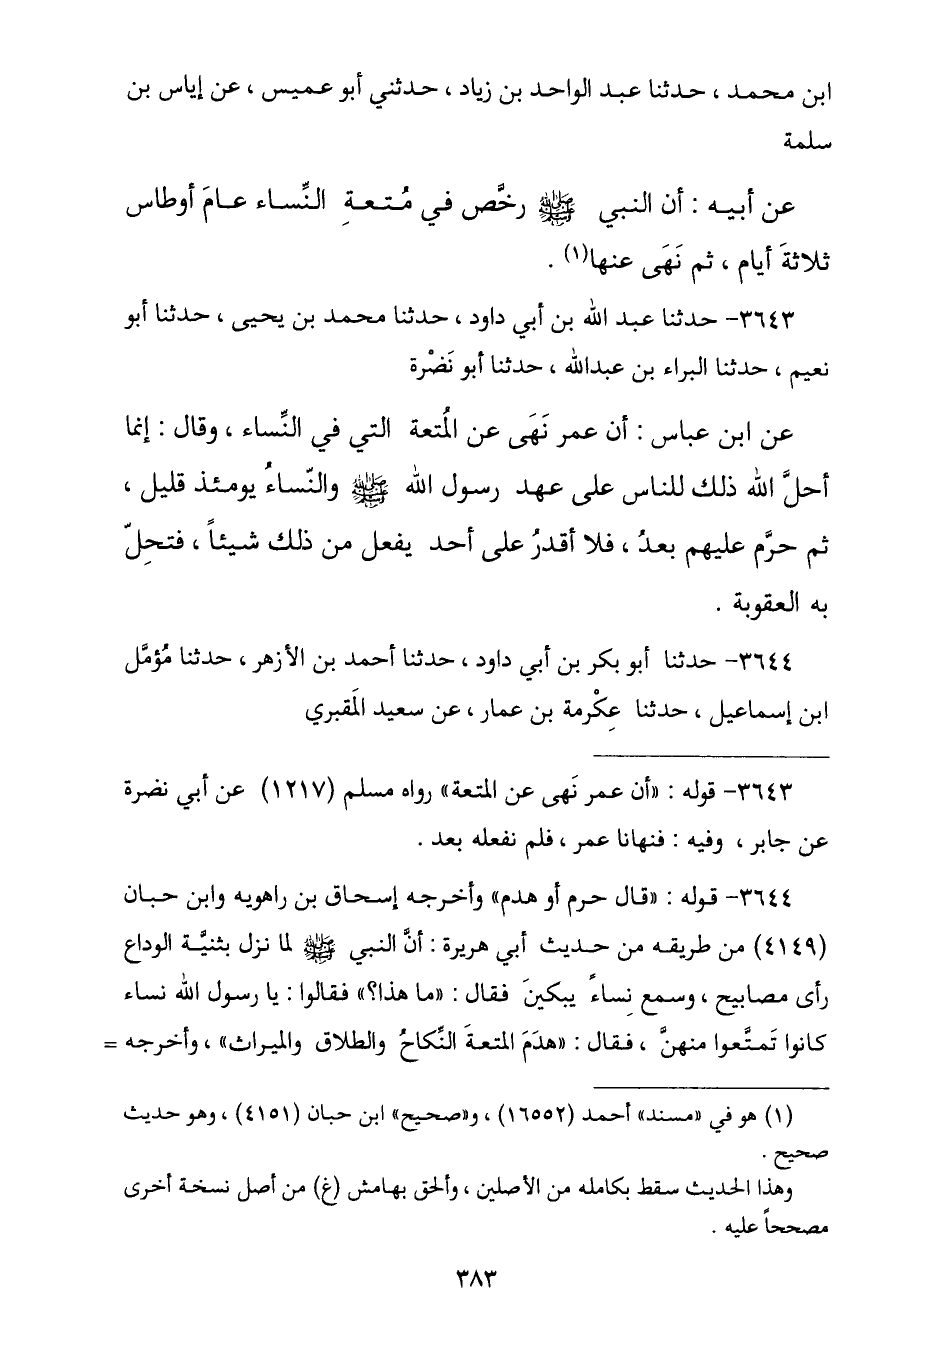 ابن محمد ، حدثنا عبد الواحد بن زياد ، حدثني أبو عميس ، عن إياس بن
سلمة
عن أبيه : أن النبي ﷺ رخَّص في مُتعةِ النِّساء عامَ أوطاس
ثلاثةَ أيام ، ثم نَهَى عنها(١) .
٣٦٤٣- حدثنا عبد الله بن أبي داود ، حدثنا محمد بن يحيى ، حدثنا أبو
نعيم ، حدثنا البراء بن عبدالله ، حدثنا أبو نَضْرة
عن ابن عباس : أن عمر نَهَى عن المُتعة التي في النِّساء ، وقال : إنما
أحلَّ الله ذلك للناس على عهد رسول الله ﷺ والنّساءُ يومئذ قليل ،
ثم حرَّم عليهم بعدُ ، فلا أقدرُ على أحد يفعل من ذلك شيئاً ، فتحِلّ
به العقوبة .
٣٦٤٤- حدثنا أبو بكر بن أبي داود ، حدثنا أحمد بن الأزهر ، حدثنا مُؤمَّل
ابن إسماعيل ، حدثنا عِكْرمة بن عمار ، عن سعيد المَقبري
٣٦٤٣- قوله : «أن عمر نَهى عن المتعة» رواه مسلم (١٢١٧) عن أبي نضرة
عن جابر ، وفيه : فنهانا عمر ، فلم نفعله بعد .
٣٦٤٤- قوله : «قال حرم أو هدم» وأخرجه إسحاق بن راهويه وابن حبان
(٤١٤٩) من طريقه من حديث أبي هريرة : أنَّ النبي ﷺ لما نزل بثنيَّة الوداع
رأى مصابيح ، وسمع نِساءً يبكينَ فقال : «ما هذا؟» فقالوا : يا رسول الله نساء
كانوا تَمتَّعوا منهنَّ ، فقال : «هدَمَ المتعةَ النِّكاحُ والطلاق والميراث» ، وأخرجه =
(١) هو في «مسند» أحمد (١٦٥٥٢) ، و«صحيح» ابن حبان (٤١٥١) ، وهو حديث
صحيح .
وهذا الحديث سقط بكامله من الأصلين ، وألحق بهامش (غ) من أصل نسخة أخرى
مصححاً عليه .
٣٨٣